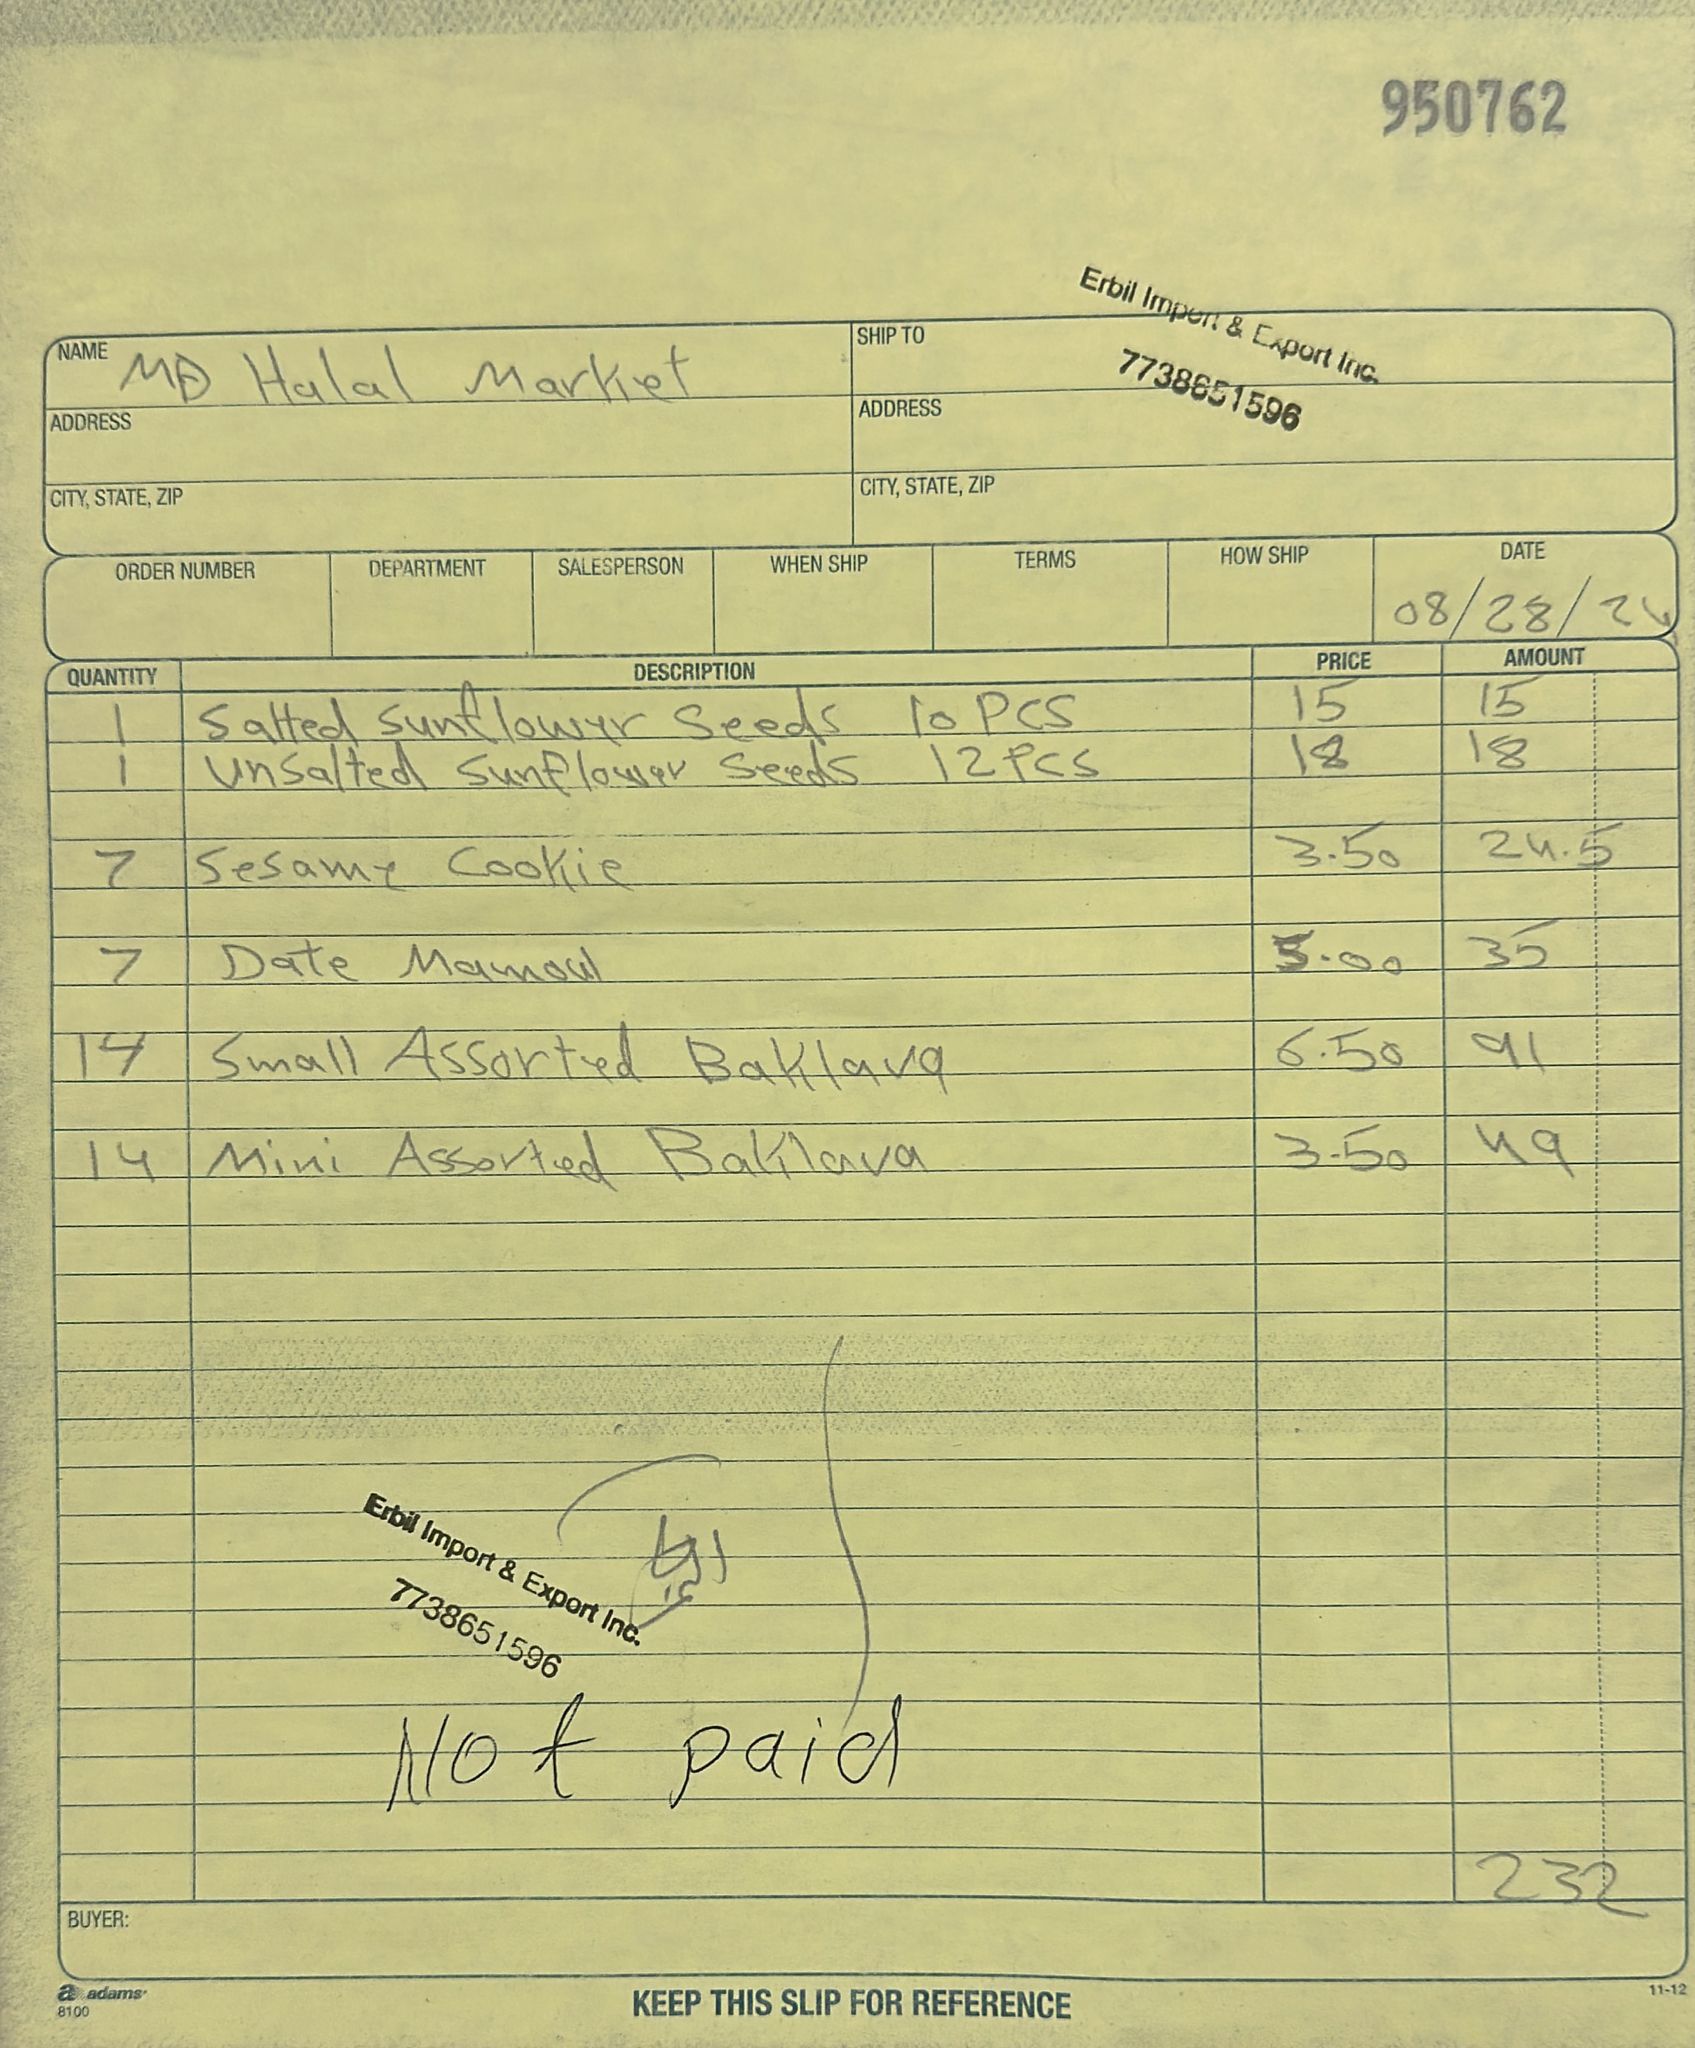 950762
Erbil Import & Export Inc.
7738651596
NAME MD Halal Market
SHIP TO
ADDRESS
ADDRESS
CITY, STATE, ZIP
CITY, STATE, ZIP
ORDER NUMBER DEPARTMENT SALESPERSON WHEN SHIP TERMS HOW SHIP DATE
08/28/24
QUANTITY DESCRIPTION PRICE AMOUNT
1 Salted Sunflower Seeds 10 PCS 15 15
1 Unsalted Sunflower Seeds 12 PCS 18 18
7 Sesame Cookie 3.50 24.5
7 Date Mamoul 5.00 35
14 Small Assorted Baklava 6.50 91
14 Mini Assorted Baklava 3.50 49
Erbil Import & Export Inc.
7738651596
Not paid
232
BUYER:
a adams
8100
KEEP THIS SLIP FOR REFERENCE
11-12